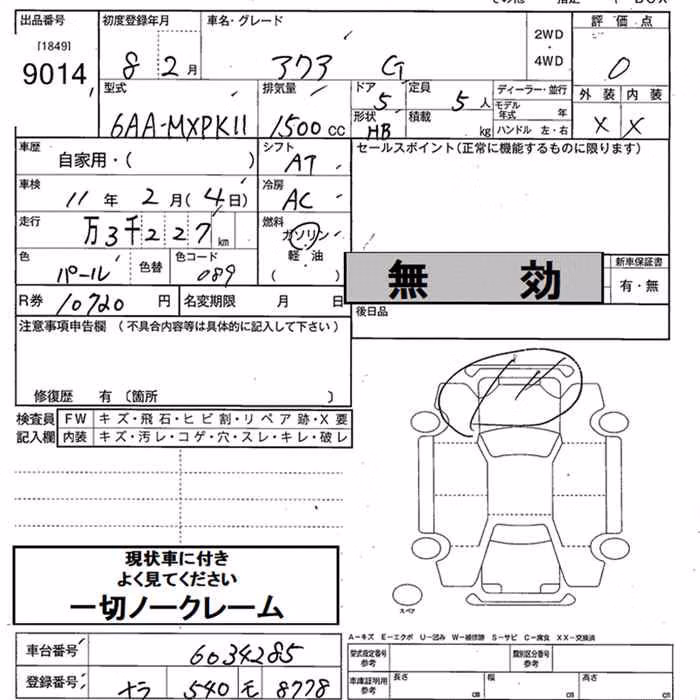 出品番号 初度登録年月 車名・グレード 2WD・4WD 評価点
[1849]
9014
8 2月 373 G 0
型式 排気量 ドア 定員 ディーラー・並行 外装 内装
6AA-MXPK11 1500cc 5 5人 モデル年式 年 X X
形状 HB 積載 kg ハンドル 左・右
車歴 シフト セールスポイント(正常に機能するものに限ります)
自家用・( ) AT
車検 冷房
11年2月(4日) AC
走行 燃料
万3千227km ガソリン
軽油
( )
色 色替 色コード
パール 089
無効
新車保証書
有・無
R券 10720円 名変期限 月 日
後日品
注意事項申告欄 (不具合内容等は具体的に記入して下さい)
修復歴 有 〔箇所 〕
検査員 FW キズ・飛石・ヒビ割・リペア跡・X要
記入欄 内装 キズ・汚レ・コゲ・穴・スレ・キレ・破レ
現状車に付き
よく見てください
一切ノークレーム
スペア
A-キズ E-エクボ U-凹み W-補修跡 S-サビ C-腐食 XX-交換済
車台番号 6034285
型式指定番号 参考 類別区分番号 参考
登録番号 ナラ 540 モ 8778
車庫証明用 参考 長さ cm 幅 cm 高さ cm